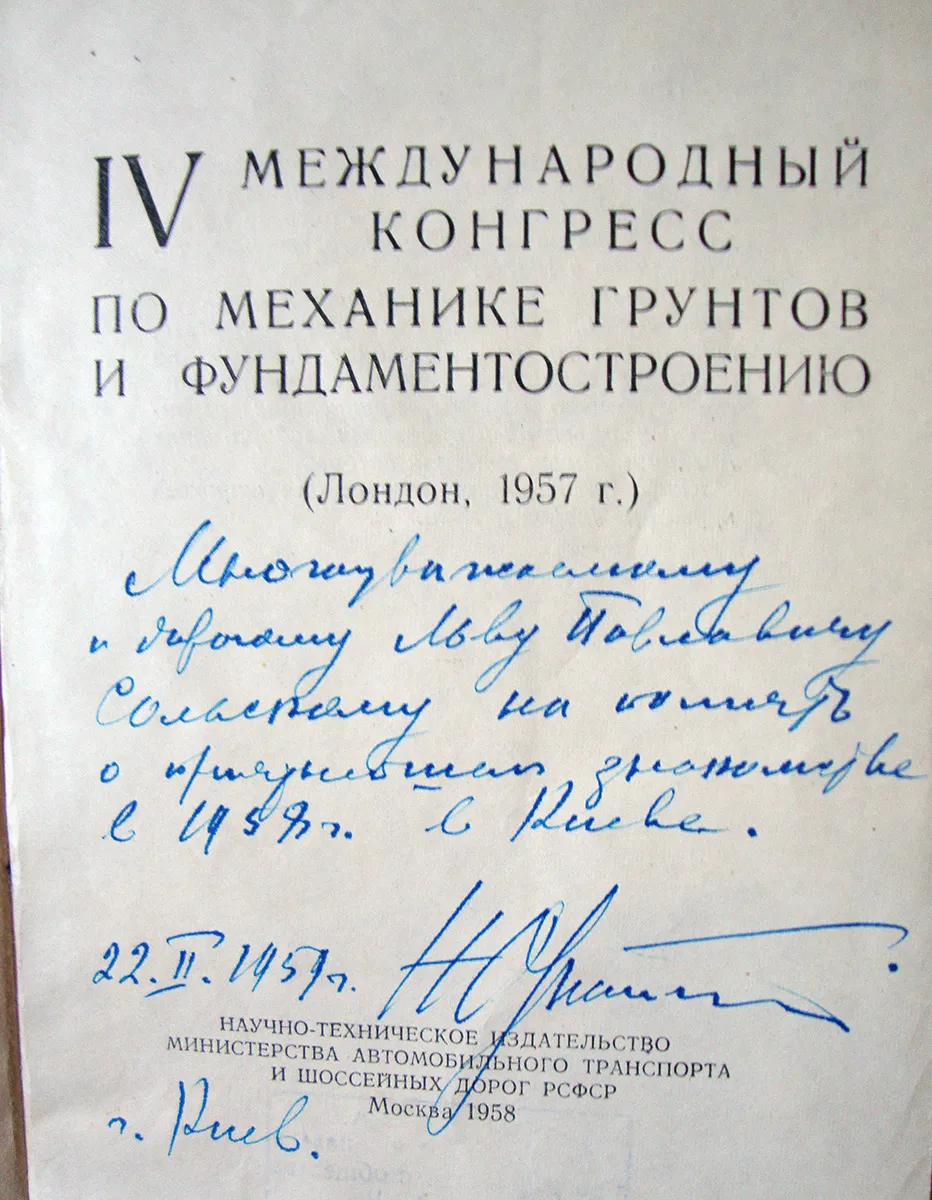 IV МЕЖДУНАРОДНЫЙ
КОНГРЕСС
ПО МЕХАНИКЕ ГРУНТОВ
И ФУНДАМЕНТОСТРОЕНИЮ
(Лондон, 1957 г.)
Многоуважаемому
и дорогому Льву Павловичу
Сольскому на память
о приятнейшем знакомстве
в 1959г. в Киеве.
22.II.1959г.
НАУЧНО-ТЕХНИЧЕСКОЕ ИЗДАТЕЛЬСТВО
МИНИСТЕРСТВА АВТОМОБИЛЬНОГО ТРАНСПОРТА
И ШОССЕЙНЫХ ДОРОГ РСФСР
Москва 1958
г. Киев.